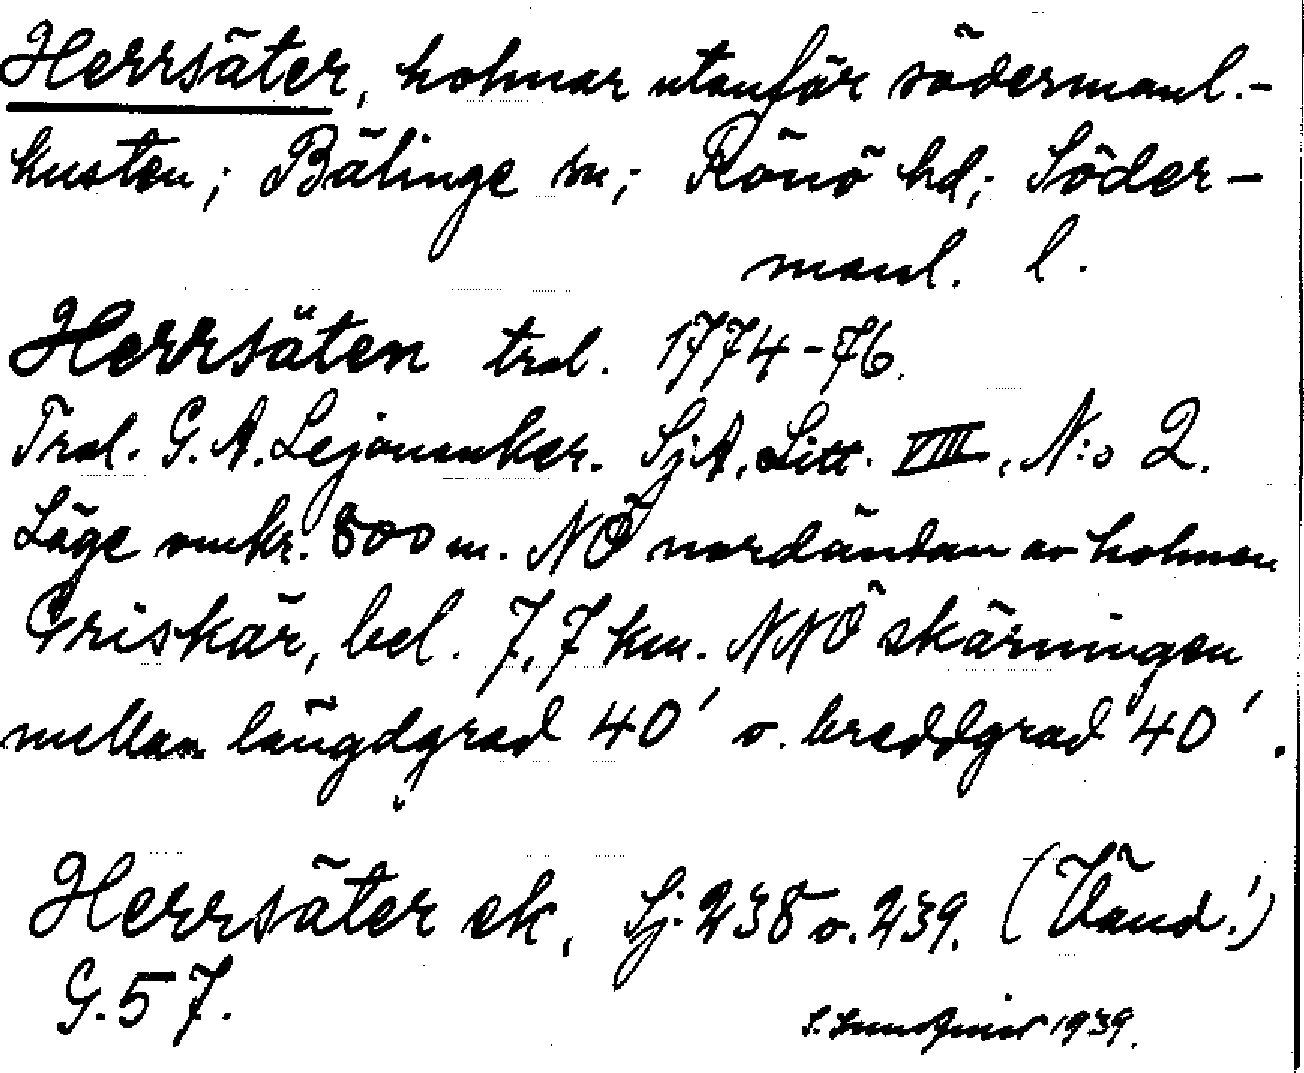 Herrsäter, holmar utanför södermanl.-
kusten; Bälinge sn; Rönö hd; Söder-
manl. l.
Herrsäten trol. 1774-76.
Trol. G. A. Lejonanker. SjA, Litt. VIII, N:o 2.
Läge omkr. 800 m. NÖ nordändan av holmen
Griskär, bel. 7,7 km. NNÖ skärningen
mellan längdgrad 40' o. breddgrad 40'.
Herrsäter sk, Sj. 238 o. 239. (Vänd!)
G. 57.
1939.